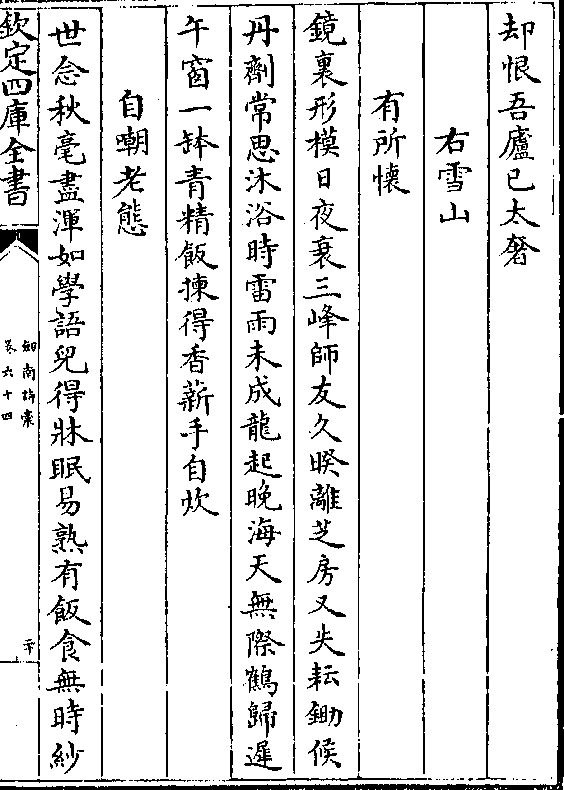 却恨吾廬已太奢
右雪山
有所懷
鏡裏形模日夜衰三峰師友久暌離芝房又失耘鋤候
丹劑常思沐浴時雷雨未成龍起晚海天無際鶴歸遲
午窗一鉢青精飯揀得香薪手自炊
自嘲老態
世念秋毫盡渾如學語兒得牀眠易熟有飯食無時紗
欽定四庫全書
劍南詩稾
卷六十四
二十